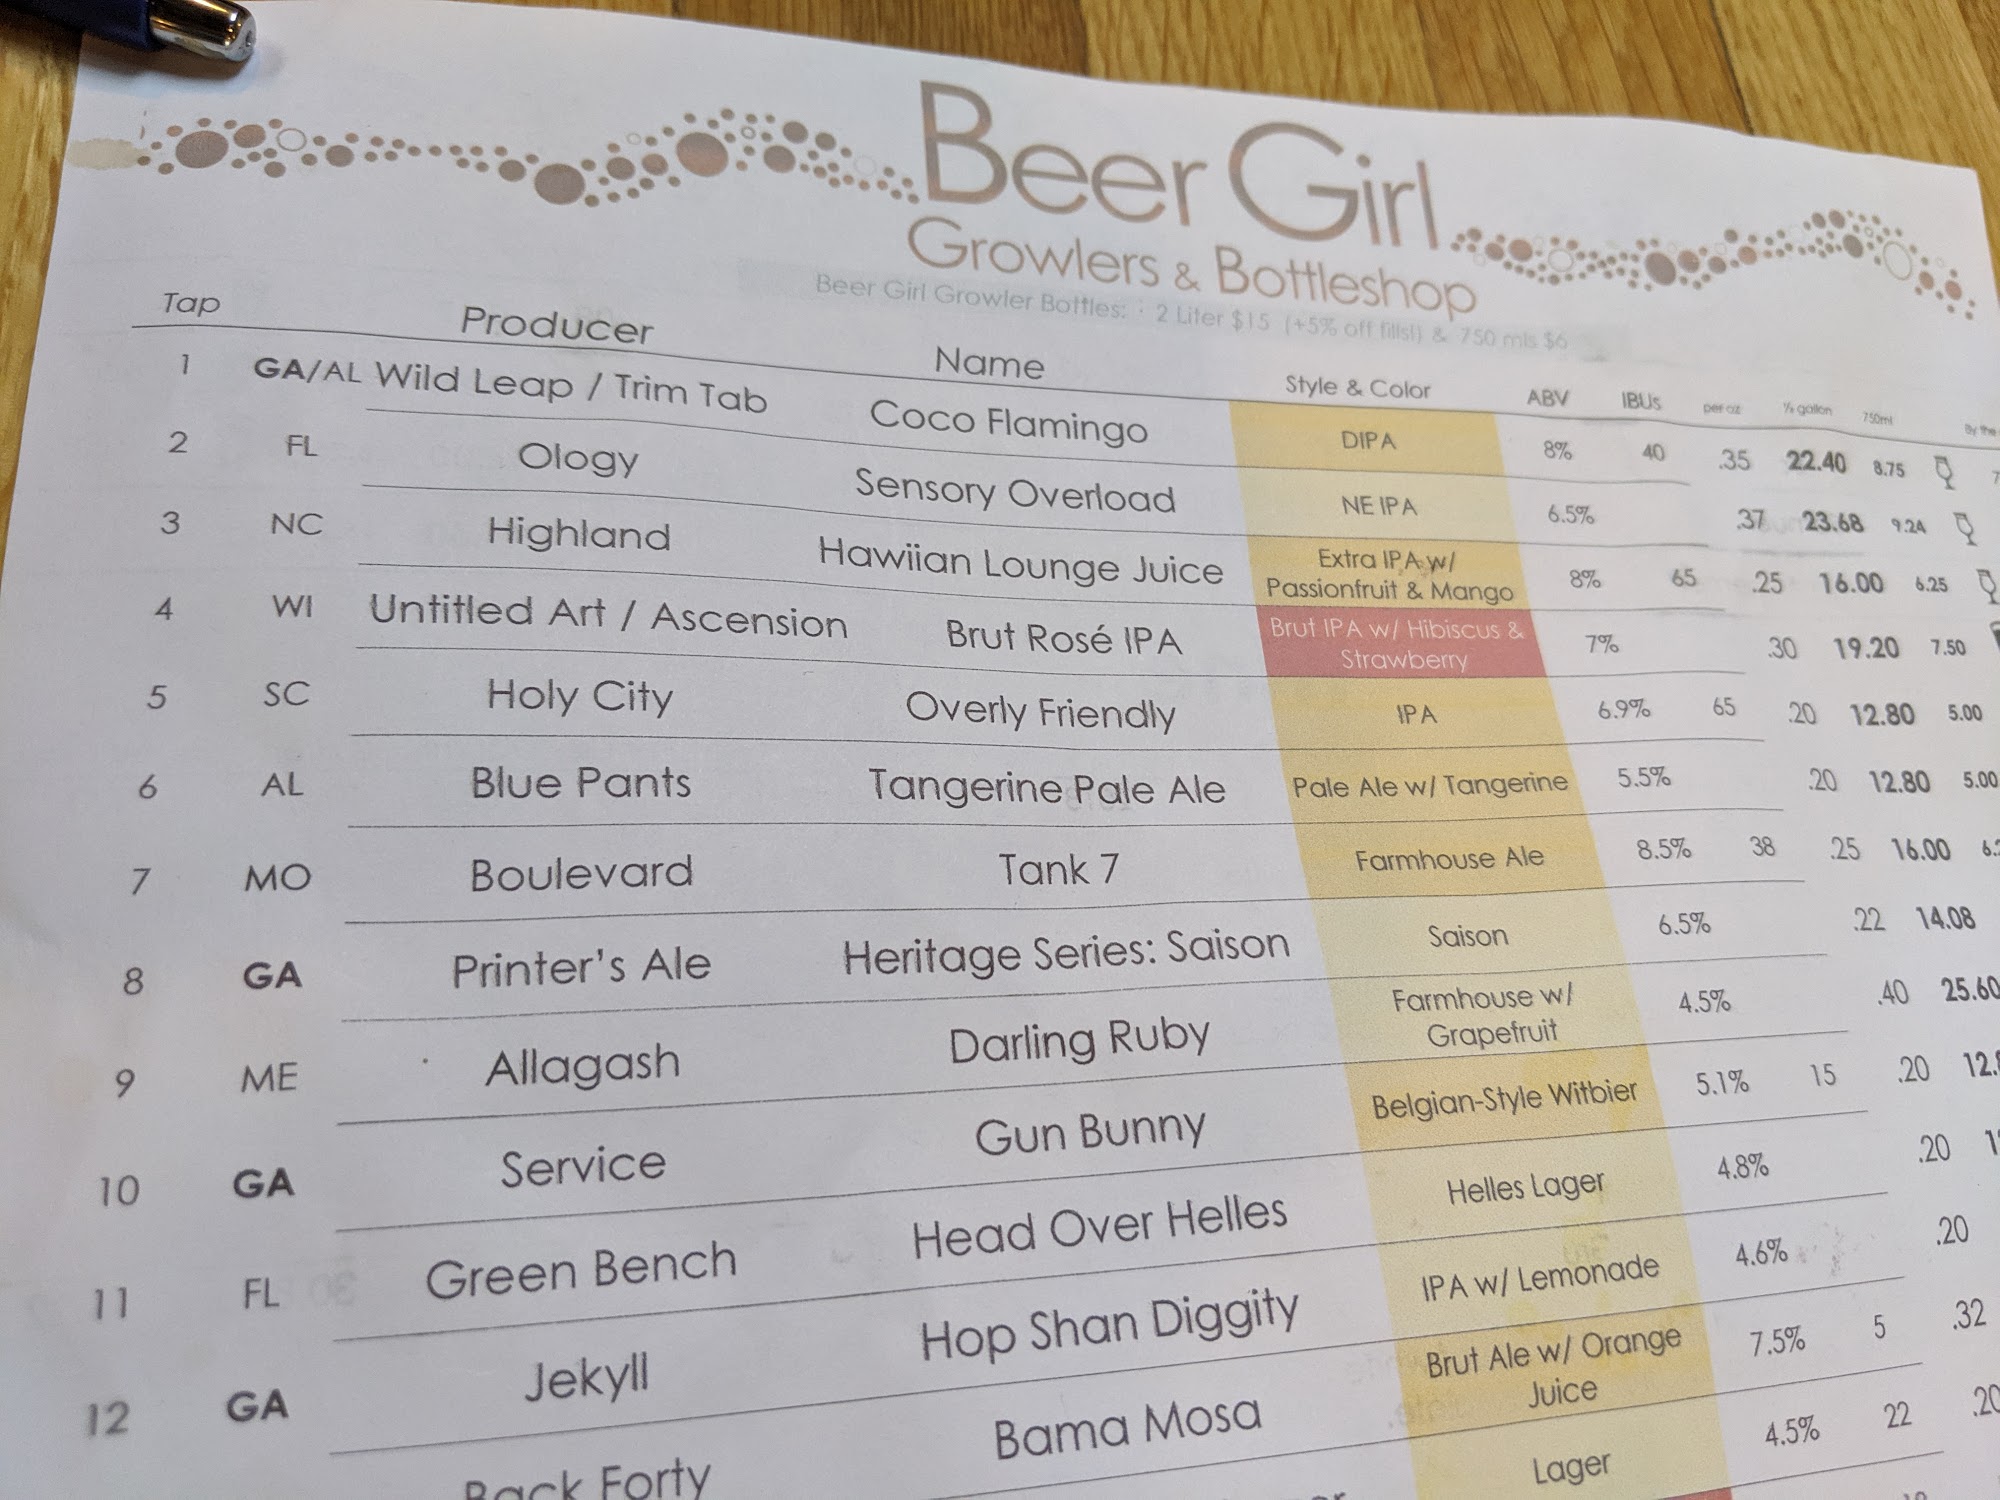 Beer Girl
Growlers & Bottleshop
Beer Girl Growler Bottles: · 2 Liter $15 (+5% off fills!) & 750 mls $6
Tap Producer Name Style & Color ABV IBUs per oz ½ gallon 750ml By the
1 GA/AL Wild Leap / Trim Tab Coco Flamingo DIPA 8% 40 .35 22.40 8.75
2 FL Ology Sensory Overload NE IPA 6.5% .37 23.68 9.24
3 NC Highland Hawiian Lounge Juice Extra IPA w/ Passionfruit & Mango 8% 65 .25 16.00 6.25
4 WI Untitled Art / Ascension Brut Rosé IPA Brut IPA w/ Hibiscus & Strawberry 7% .30 19.20 7.50
5 SC Holy City Overly Friendly IPA 6.9% 65 .20 12.80 5.00
6 AL Blue Pants Tangerine Pale Ale Pale Ale w/ Tangerine 5.5% .20 12.80 5.00
7 MO Boulevard Tank 7 Farmhouse Ale 8.5% 38 .25 16.00
8 GA Printer's Ale Heritage Series: Saison Saison 6.5% .22 14.08
9 ME Allagash Darling Ruby Farmhouse w/ Grapefruit 4.5% .40 25.60
10 GA Service Gun Bunny Belgian-Style Witbier 5.1% 15 .20
11 FL Green Bench Head Over Helles Helles Lager 4.8% .20
12 GA Jekyll Hop Shan Diggity IPA w/ Lemonade 4.6% .20
Back Forty Bama Mosa Brut Ale w/ Orange Juice 7.5% 5 .32
Lager 4.5% 22 .20